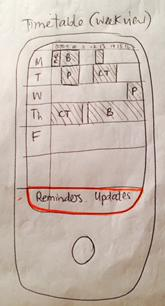 Timetable (week view)
M B
T P CT
W P
Th CT B
F
Reminders Updates